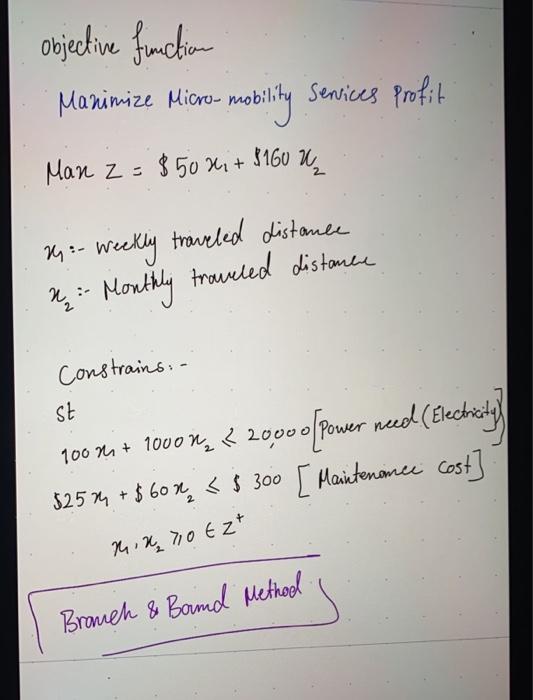 objective function
Maximize Micro-mobility Services Profit
Max Z = $50 x₁ + $160 x₂
x₁ :- Weekly traveled distance
x₂ :- Monthly traveled distance
Constrains :-
St
100 x₁ + 1000 x₂ ≤ 20,000 [Power need (Electricity)]
$25 x₁ + $60 x₂ ≤ $ 300 [Maintenance Cost]
x₁, x₂ ≥ 0 ∈ Z⁺
Branch & Bound Method